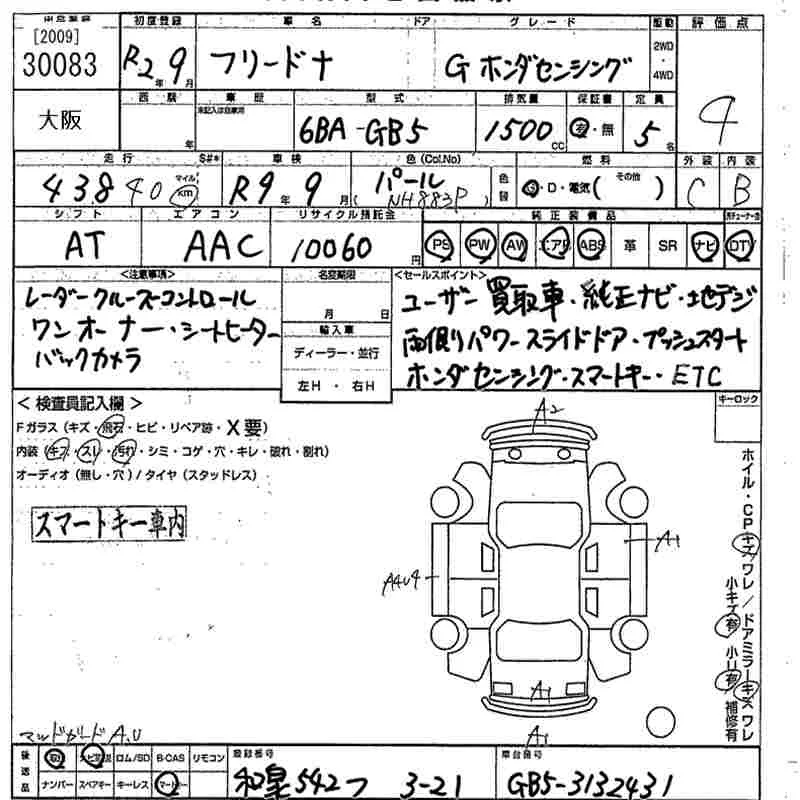 [2009]
30083
初度登録
R2年 9月
車名 ドア グレード
フリードナ G ホンダセンシング
駆動
2WD
・
4WD
評価点
4
大阪
西暦
年
車歴
未記入は自家用
型式
6BA-GB5
排気量
1500cc
保証書
有・無
定員
5名
走行
43840 マイル km
S#*
車検
R9年 9月
色(Col.No)
パール
(NH883P)
色替
燃料
G・D・電気( その他 )
外装
C
内装
B
シフト
AT
エアコン
AAC
リサイクル預託金
10060円
純正装備品
PS PW AW エアB ABS 革 SR ナビ DTV
<注意事項>
レーダークルーズコントロール
ワンオーナー・シートヒーター
バックカメラ
名変期限
月 日
輸入車
ディーラー・並行
左H・右H
<セールスポイント>
ユーザー買取車・純正ナビ・地デジ
両側パワースライドドア・プッシュスタート
ホンダセンシング・スマートキー・ETC
キーロック
<検査員記入欄>
Fガラス(キズ・飛石・ヒビ・リペア跡・X要)
内装(キズ・スレ・汚れ・シミ・コゲ・穴・キレ・破れ・割れ)
オーディオ(無し・穴)/タイヤ(スタッドレス)
スマートキー車内
A2
A1
A4U4
A1
A1
ホイル・CPキズワレ/ドアミラーキズワレ
小キズ有 小凹有 補修有
マッドガードA.U
後送品
取説 ナビ ロム/SD B-CAS リモコン
ナンバー スペアキー キーレス スマートキー
登録番号
和泉542フ 3-21
車台番号
GB5-3132431